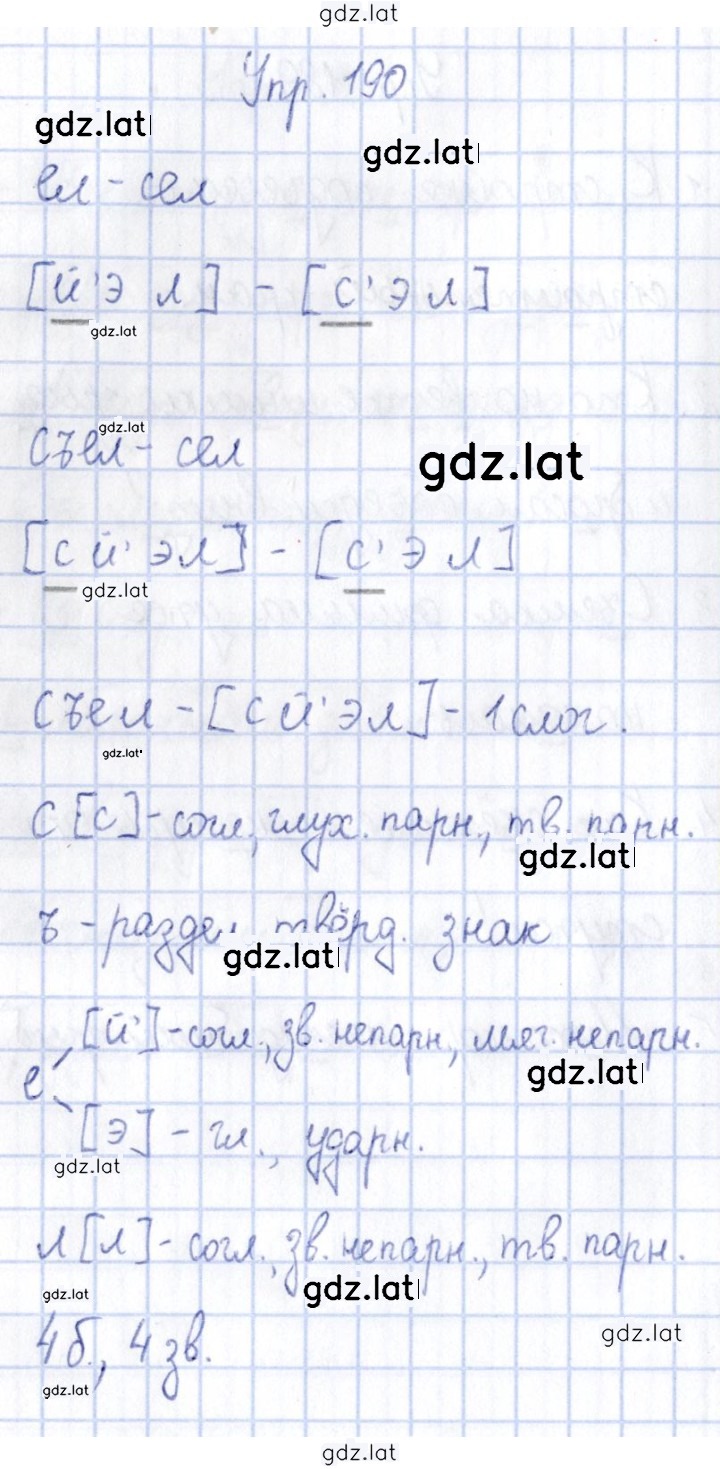 gdz.lat
Упр. 190
gdz.lat
gdz.lat
ел - сел
[й'э л] - [с'э л]
gdz.lat
gdz.lat
съел - сел
gdz.lat
[с й'эл] - [с'э л]
gdz.lat
съел - [с й'эл] - 1 слог.
gdz.lat
с [с] - согл, глух. парн., тв. парн.
gdz.lat
ъ - твёрд. знак
gdz.lat
[й'] - согл., зв. непарн, мяг. непарн.
е
gdz.lat
[э] - гл., ударн.
gdz.lat
л [л] - согл., зв. непарн., тв. парн.
gdz.lat
gdz.lat
4 б., 4 зв.
gdz.lat
gdz.lat
gdz.lat